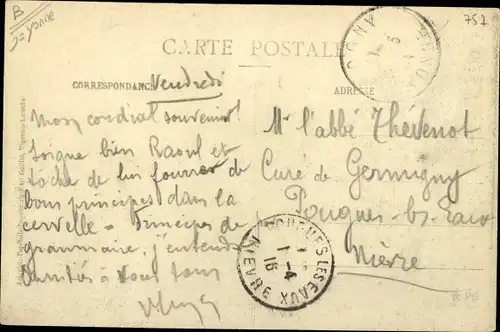 B
32 
757
CARTE POSTALE
CORRESPONDANCE
ADRESSE
Vendredi
Mon cordial souvenir!
Soigne bien Raoul et
tâche de lui fourrer de
bons principes dans la
cervelle - Principes de
grammaire, j'entends
Amitiés à vous tous
Mr l'abbé Thévenot
Curé de Germigny
Pougues-les-Eaux
Nièvre
POUGUES-LES-EAUX
1-4
16
NIEVRE